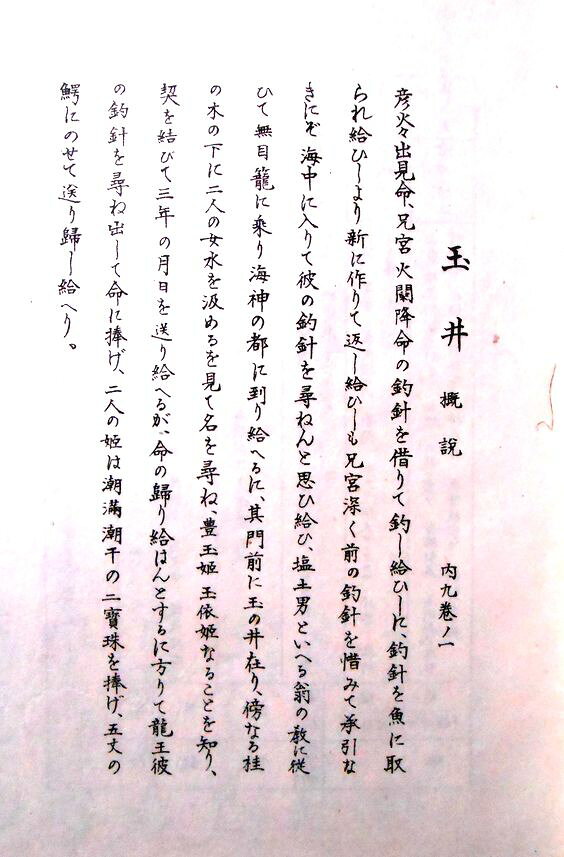 玉井 概說 內九卷ノ一
彥火々出見命、兄宮火闌降命の釣針を借りて釣し給ひしに、釣針を魚に取
られ給ひしより新に作りて返し給ひしも兄宮深く前の釣針を惜みて承引な
きにぞ海中に入りて彼の釣針を尋ねんと思ひ給ひ、塩土男といへる翁の敎に從
ひて無目籠に乘り海神の都に到り給へるに、其門前に玉の井在り、傍なる桂
の木の下に二人の女水を汲めるを見て名を尋ね、豊玉姬玉依姬なることを知り、
契を結びて三年の月日を送り給へるが、命の歸り給はんとするに方りて龍王彼
の釣針を尋ね出して命に捧げ、二人の姬は潮滿潮干の二寶珠を捧げ、五丈の
鰐にのせて送り歸し給へり。